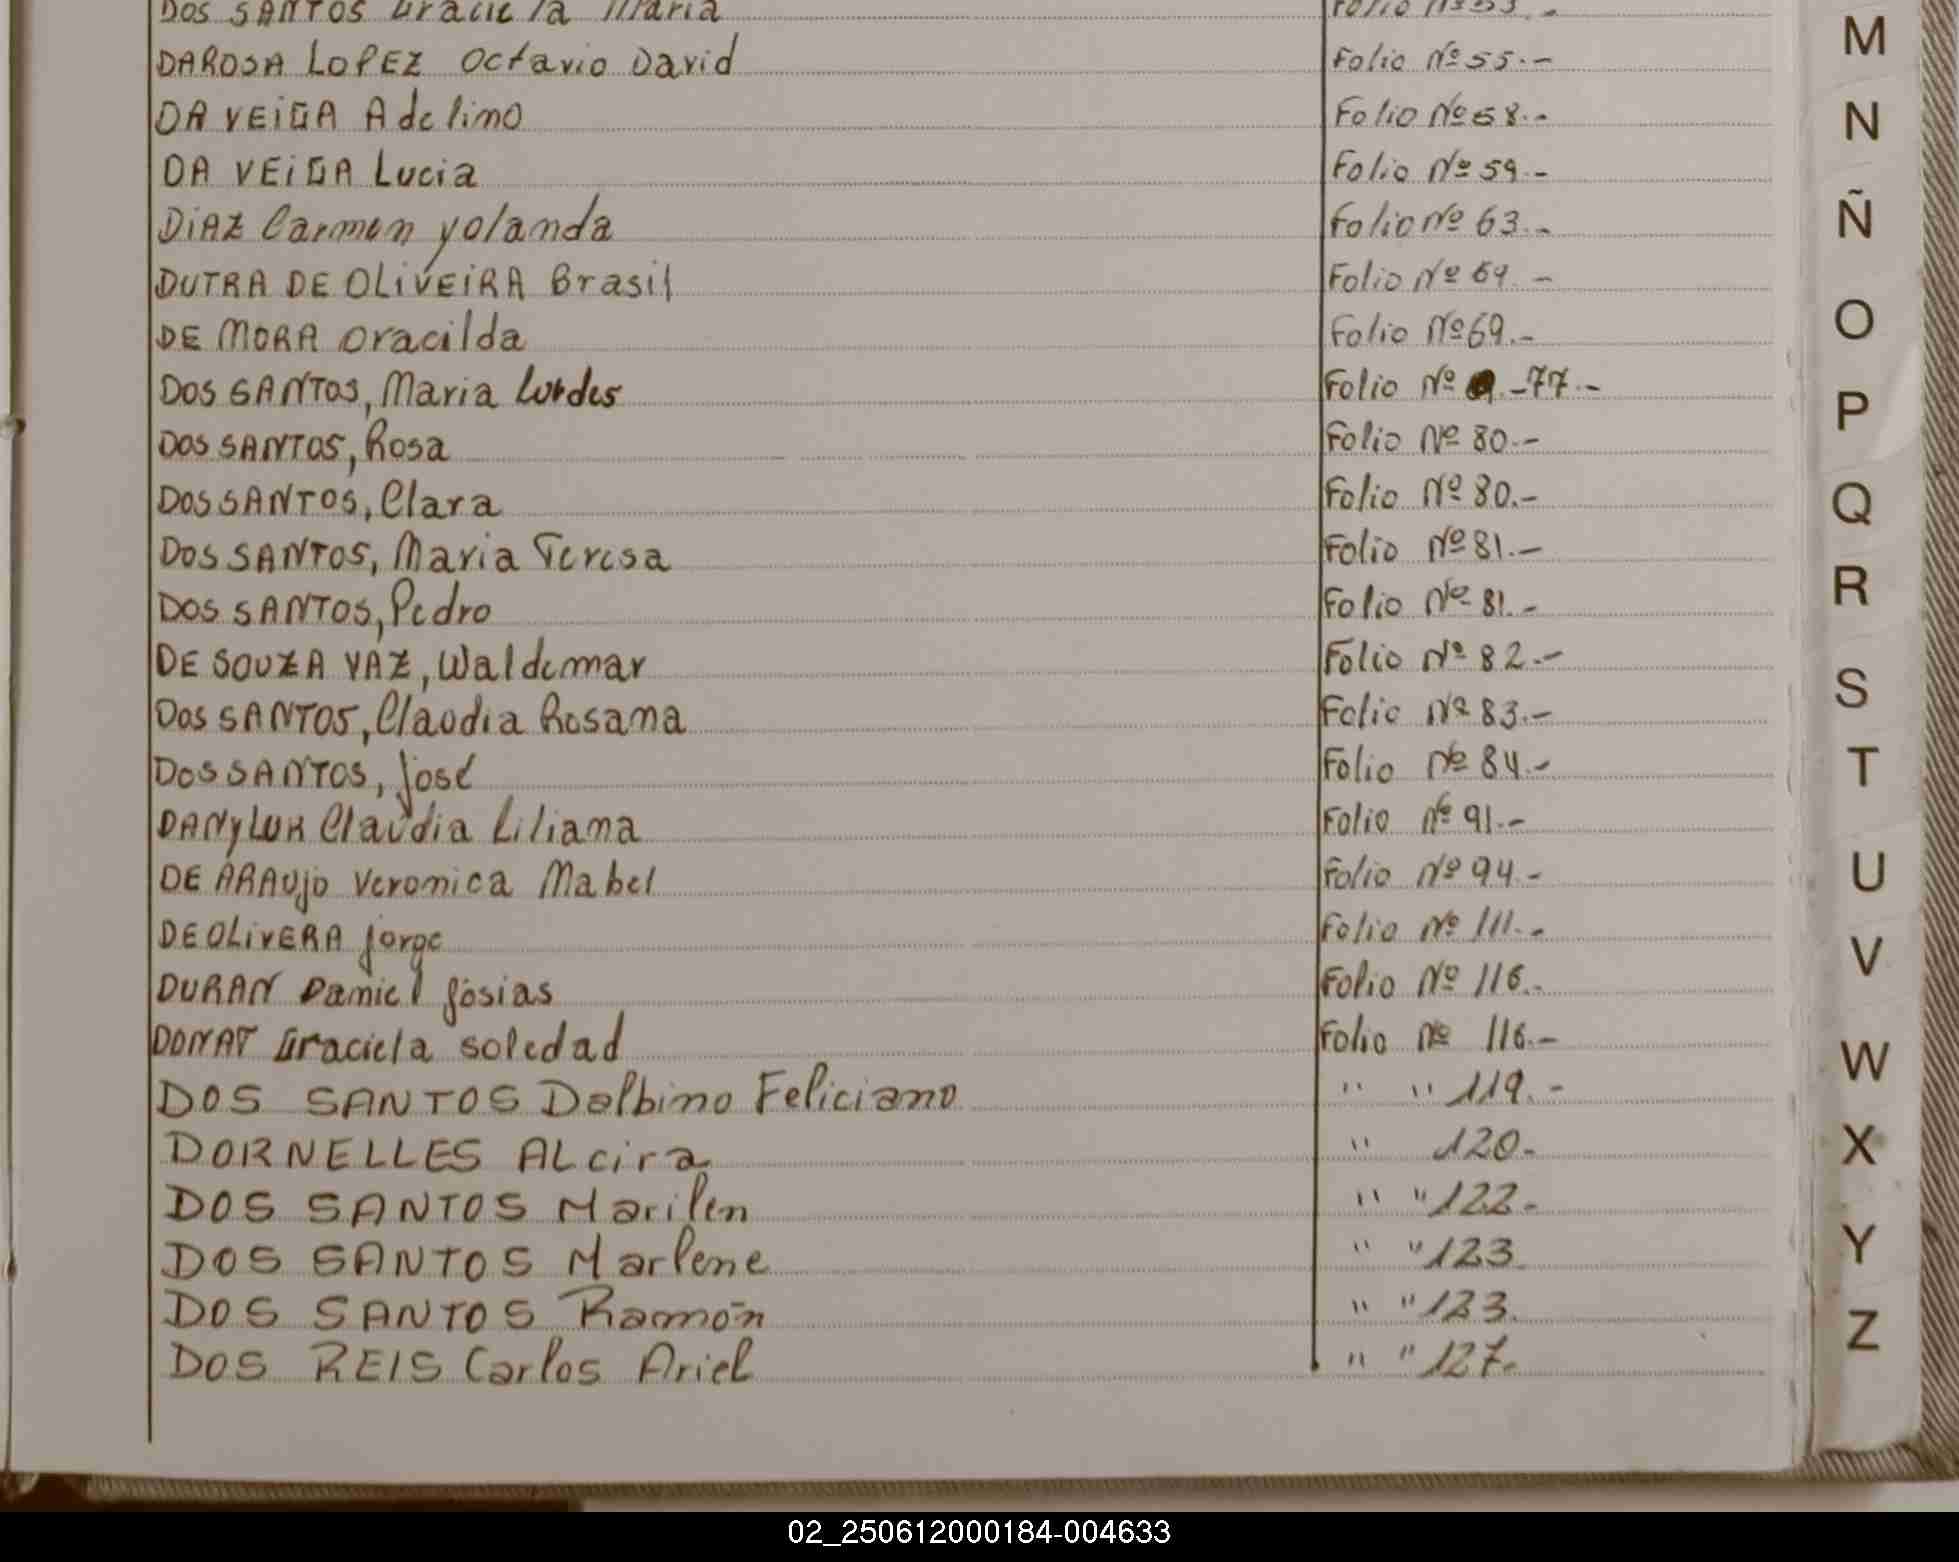 DOS SANTOS Graciela Maria Folio Nº 53.-
DAROSA LOPEZ Octavio David Folio Nº 55.-
DA VEIGA Adelino Folio Nº 58.-
DA VEIGA Lucia Folio Nº 59.-
DIAZ Carmen yolanda Folio Nº 63.-
DUTRA DE OLIVEIRA Brasil Folio Nº 69.-
DE MORA Oracilda Folio Nº 69.-
DOS SANTOS, Maria Lurdes Folio Nº .-77.-
DOS SANTOS, Rosa Folio Nº 80.-
DOS SANTOS, Clara Folio Nº 80.-
DOS SANTOS, Maria Teresa Folio Nº 81.-
DOS SANTOS, Pedro Folio Nº 81.-
DE SOUZA VAZ, Waldemar Folio Nº 82.-
DOS SANTOS, Claudia Rosana Folio Nº 83.-
DOS SANTOS, José Folio Nº 84.-
DANYLUK Claudia Liliana Folio Nº 91.-
DE ARAUJO Veronica Mabel Folio Nº 94.-
DE OLIVERA Jorge Folio Nº 111.-
DURAN Daniel Josias Folio Nº 116.-
DONAT Graciela Soledad Folio Nº 116.-
DOS SANTOS Dalbino Feliciano " " 119.-
DORNELLES ALcira " 120.-
DOS SANTOS Marilen " " 122.-
DOS SANTOS Marlene " " 123.
DOS SANTOS Ramón " " 123.
DOS REIS Carlos Ariel " " 127.-
M
N
Ñ
O
P
Q
R
S
T
U
V
W
X
Y
Z
02_250612000184-004633